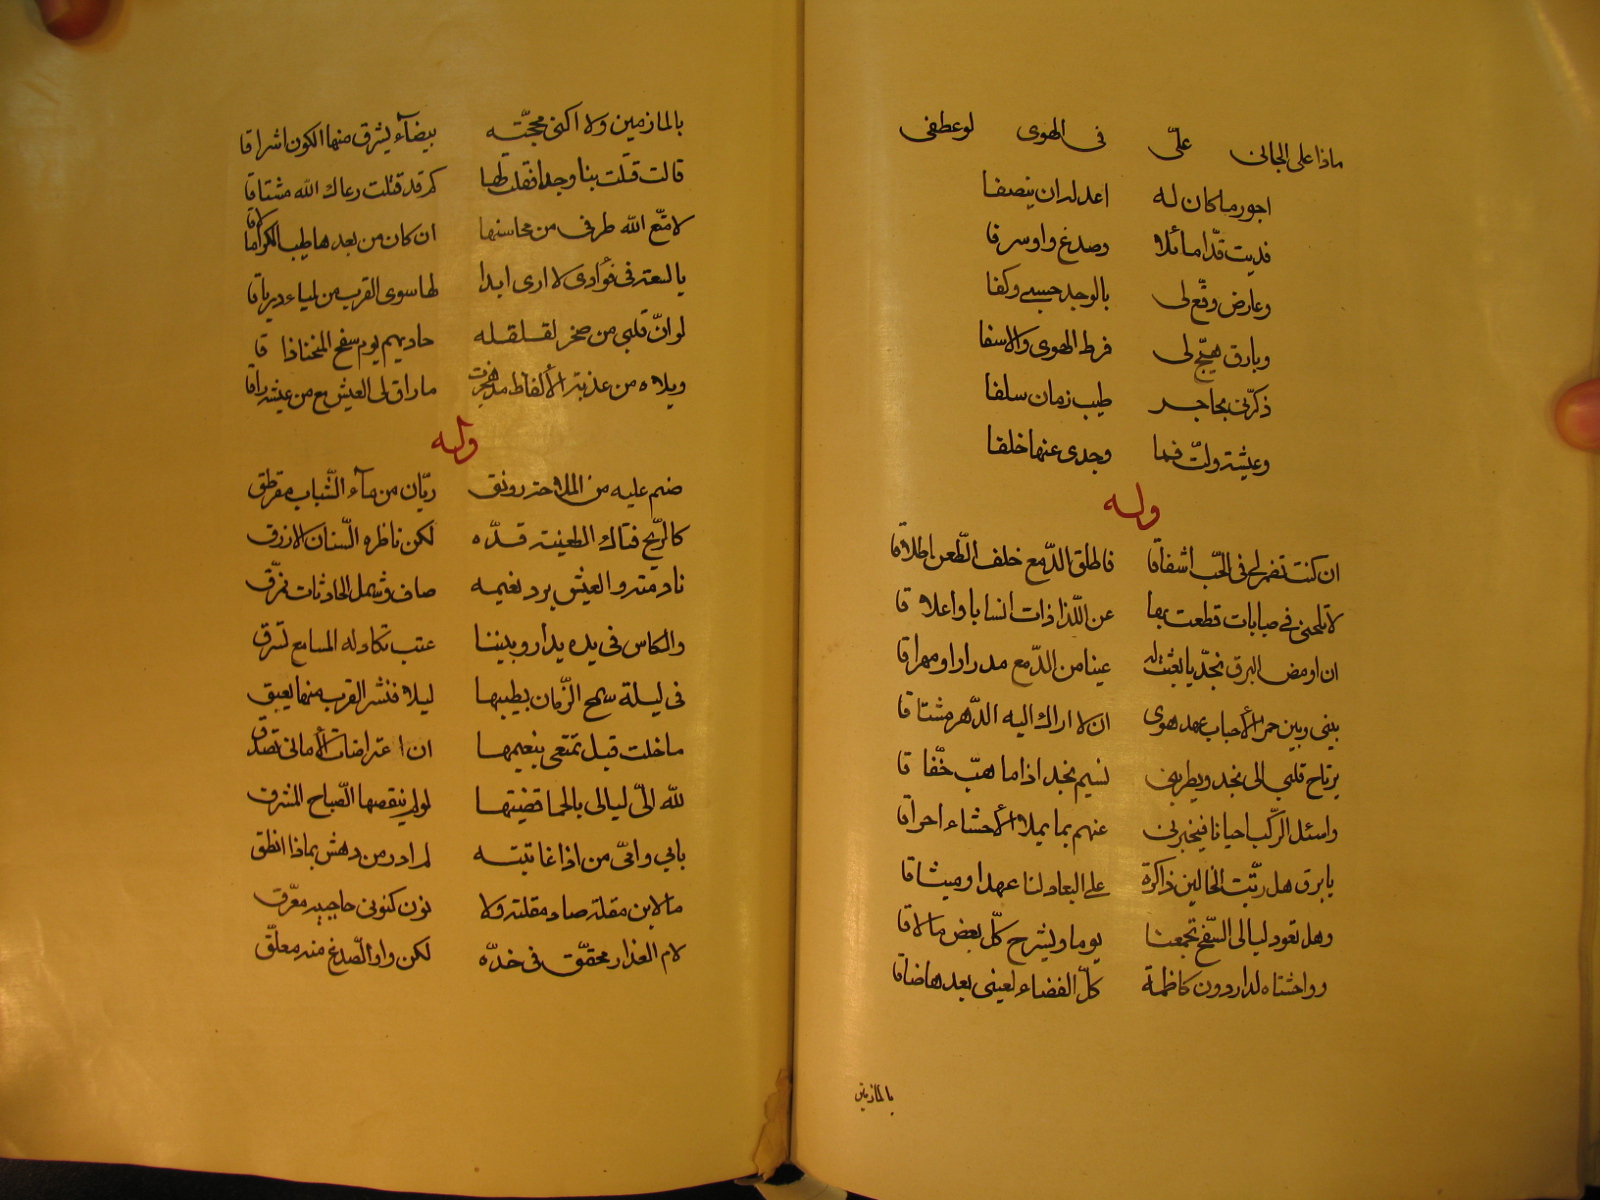 ماذا على الجانى علىّ فى الهوى لو عطفى
اجور ما كان له اعدل ان ينصفا
فديت قدّا مائلا وصدغ واو سرفا
وعارض وقّع لى بالوجد حسبى وكفا
وبارق هيّج لى فرط الهوى والاسفا
ذكرّنى بحاجر طيب زمان سلفا
وعيشة ولّت فما وجدى عنها خلفا
وله
ان كنت تضمر لى فى الحبّ اشفاقا فاطلق الدّمع خلف الظّعن اطلاقا
لا تلحنى فى صبابات قطعت بها عن اللّذاذات انسابا واعلاقا
ان اومض البرق نجديا بعثت له عينا من الدّمع مدرارا ومهراقا
بينى وبين حمى الأحباب عهد هوى ان لا اراك اليه الدّهر مشتاقا
يرتاح قلبى الى نجد ويطربنى نسيم نجد اذا ما هبّ خفّاقا
واسئل الرّكب احيانا فيخبرنى عنهم بما يملأ الأحشاء احراقا
يا برق هل ريّت الخالين ذاكرة على البعاد لنا عهدا وميثاقا
وهل تعود ليالى السّفح تجمعنا يوما ويشرح كلّ بعض ما لاقا
وواحشتاه لدار دون كاظمة كلّ الفضاء لعينى بعدها ضاقا
بالمازمين
بالمازمين ولا اكنى محجّته بيضآء يشرق منها الكون اشراقا
قالت قتلت بنا وجدا فقلت لها كم قد قتلت رعاك الله مشتاقا
لا متّع الله طرفى من محاسنها ان كان من بعدها طيب الكرا لاقا
يا لسعة فى فؤادى لا ارى ابدا لها سوى القرب من لمياء درياقا
لو انّ قلبى من صخر لقلقله حاديهم يوم سفح المنحنا ذاقا
ويلاه من عذبة الألفاظ مذ هجرت ما راق لى العيش مع من عيشه راقا
وله
صنم عليه من الملاحة رونق ريّان من مآء الشّباب مقرطق
كالرّمح فتاك الطعينة قدّه لكن ناظره السّنان الازرق
نادمته والعيش برد نعيمه صاف وشمل الحادثات تمزّق
والكاس فى يده يدار وبيننا عتب تكاد له المسامع تسرق
فى ليلة سمح الزّمان بطيبها ليلا فنشر القرب منها يعبق
ما خلت قبل تمتعى بنعيمها ان اعتراضات الأمانى تصدق
لله الىّ ليالى بالحما قضيتها لو لم ينقصها الصّباح المشرق
بابى وامّى من اذا عاتبته لم ادر من دهش بماذا انطق
ما لابن مقلة صاد مقلته ولا نون كنونى حاجبيه معرّق
لام العذار محقّق فى خدّه لكن واو الصّدغ منه معلّق